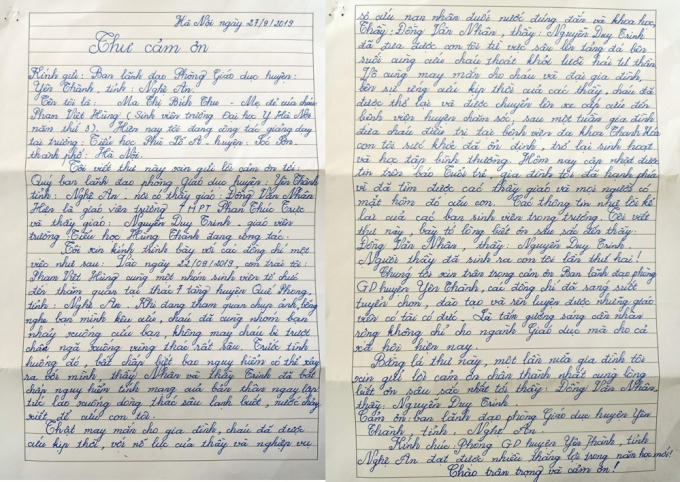 Hà Nội ngày 27/9/2019
Thư cảm ơn
Kính gửi: Ban lãnh đạo Phòng Giáo dục huyện:
Yên Thành, tỉnh: Nghệ An.
Tên tôi là: Ma Thị Bích Thu - Mẹ đẻ của cháu
Phan Việt Hùng (Sinh viên trường Đại học Y Hà Nội
năm thứ 3). Hiện nay tôi đang công tác giảng dạy
tại trường: Tiểu học Phù Lỗ A - huyện: Sóc Sơn -
thành phố: Hà Nội.
Tôi viết thư này xin gửi lời cảm ơn tới:
Quý ban lãnh đạo phòng Giáo dục huyện: Yên Thành
tỉnh: Nghệ An, nơi có thầy giáo: Đồng Văn Nhân
Hiện là giáo viên trường THPT Phan Thúc Trực
và thầy giáo: Nguyễn Duy Trinh, giáo viên
trường Tiểu học Hùng Thành đang công tác.
Tôi xin kính trình bày với các đồng chí một
việc như sau: Vào ngày 22/09/2019, con trai tôi:
Phạm Việt Hùng cùng một nhóm sinh viên tổ chức
đến thăm quan tại thác 7 tầng huyện Quế Phong,
tỉnh: Nghệ An. Khi đang tham quan chụp ảnh, bỗng
nghe bạn mình kêu cứu, cháu đã cùng nhóm bạn
nhảy xuống cứu bạn, không may cháu bị trượt
chân ngã xuống vùng thác rất sâu. Trước tình
huống đó, bất chấp biết bao nguy hiểm có thể xảy
ra với mình, thầy Nhân và thầy Trinh đã bất
chấp nguy hiểm tính mạng của bản thân ngay lập
tức lao xuống dòng thác sâu lạnh buốt, nước chảy
xiết, để cứu con tôi.
Thật may mắn cho gia đình, cháu đã được
cứu kịp thời, với nỗ lực của thầy và nghiệp vụ
sơ cứu nạn nhân đuối nước đúng đắn và khoa học,
Thầy: Đồng Văn Nhân, thầy: Nguyễn Duy Trinh
đã đưa được con tôi từ vực sâu lên tảng đá bên
suối cùng cứu cháu thoát khỏi lưỡi hái tử thần.
Vô cùng may mắn cho cháu và đại gia đình,
bên sự ứng cứu kịp thời của các thầy, cháu đã
được thở lại và được chuyển lên xe cấp cứu đến
bệnh viện huyện chăm sóc, sau một tuần gia đình
đưa cháu điều trị tại bệnh viện đa khoa Thanh Hóa
con tôi sức khỏe đã ổn định, trở lại sinh hoạt
và học tập bình thường. Hôm nay cập nhật được
tin trên báo Tuổi trẻ, gia đình tôi đã hạnh phúc
vì đã tìm được các thầy giáo và mọi người có
mặt hôm đó cứu con. Các thông tin như lời kể
lại của các bạn sinh viên trong trường. Tôi viết
thư này, bày tỏ lòng biết ơn sâu sắc đến thầy:
Đồng Văn Nhân, thầy: Nguyễn Duy Trinh.
Người thầy đã sinh ra con tôi lần thứ hai!
Chúng tôi xin trân trọng cảm ơn Ban lãnh đạo phòng
GD huyện Yên Thành, các đồng chí đã sáng suốt
tuyển chọn, đào tạo và rèn luyện được những giáo
viên có tài có đức. Là tấm gương sáng cần nhân
rộng không chỉ cho ngành Giáo dục mà cho cả
xã hội hiện nay.
Bằng lá thư này, một lần nữa gia đình tôi
xin gửi lời cảm ơn chân thành nhất cùng lòng
biết ơn sâu sắc nhất tới thầy: Đồng Văn Nhân,
thầy: Nguyễn Duy Trinh.
Cảm ơn ban lãnh đạo phòng Giáo dục huyện Yên
Thành, tỉnh: Nghệ An.
Kính chúc Phòng GD huyện Yên Thành, tỉnh
Nghệ An đạt được nhiều thắng lợi trong năm học mới!
Chào trân trọng và cảm ơn!